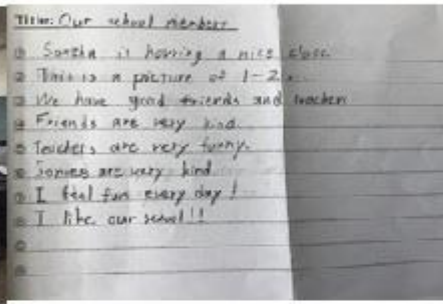 Title: Our school members
① Sontha is having a nice class.
② This is a picture of 1-2.
③ We have good friends and teachers
④ Friends are very kind.
⑤ Teachers are very funny.
⑥ are very kind
⑦ I feel fun every day!
⑧ I like our school!!
⑨
⑩